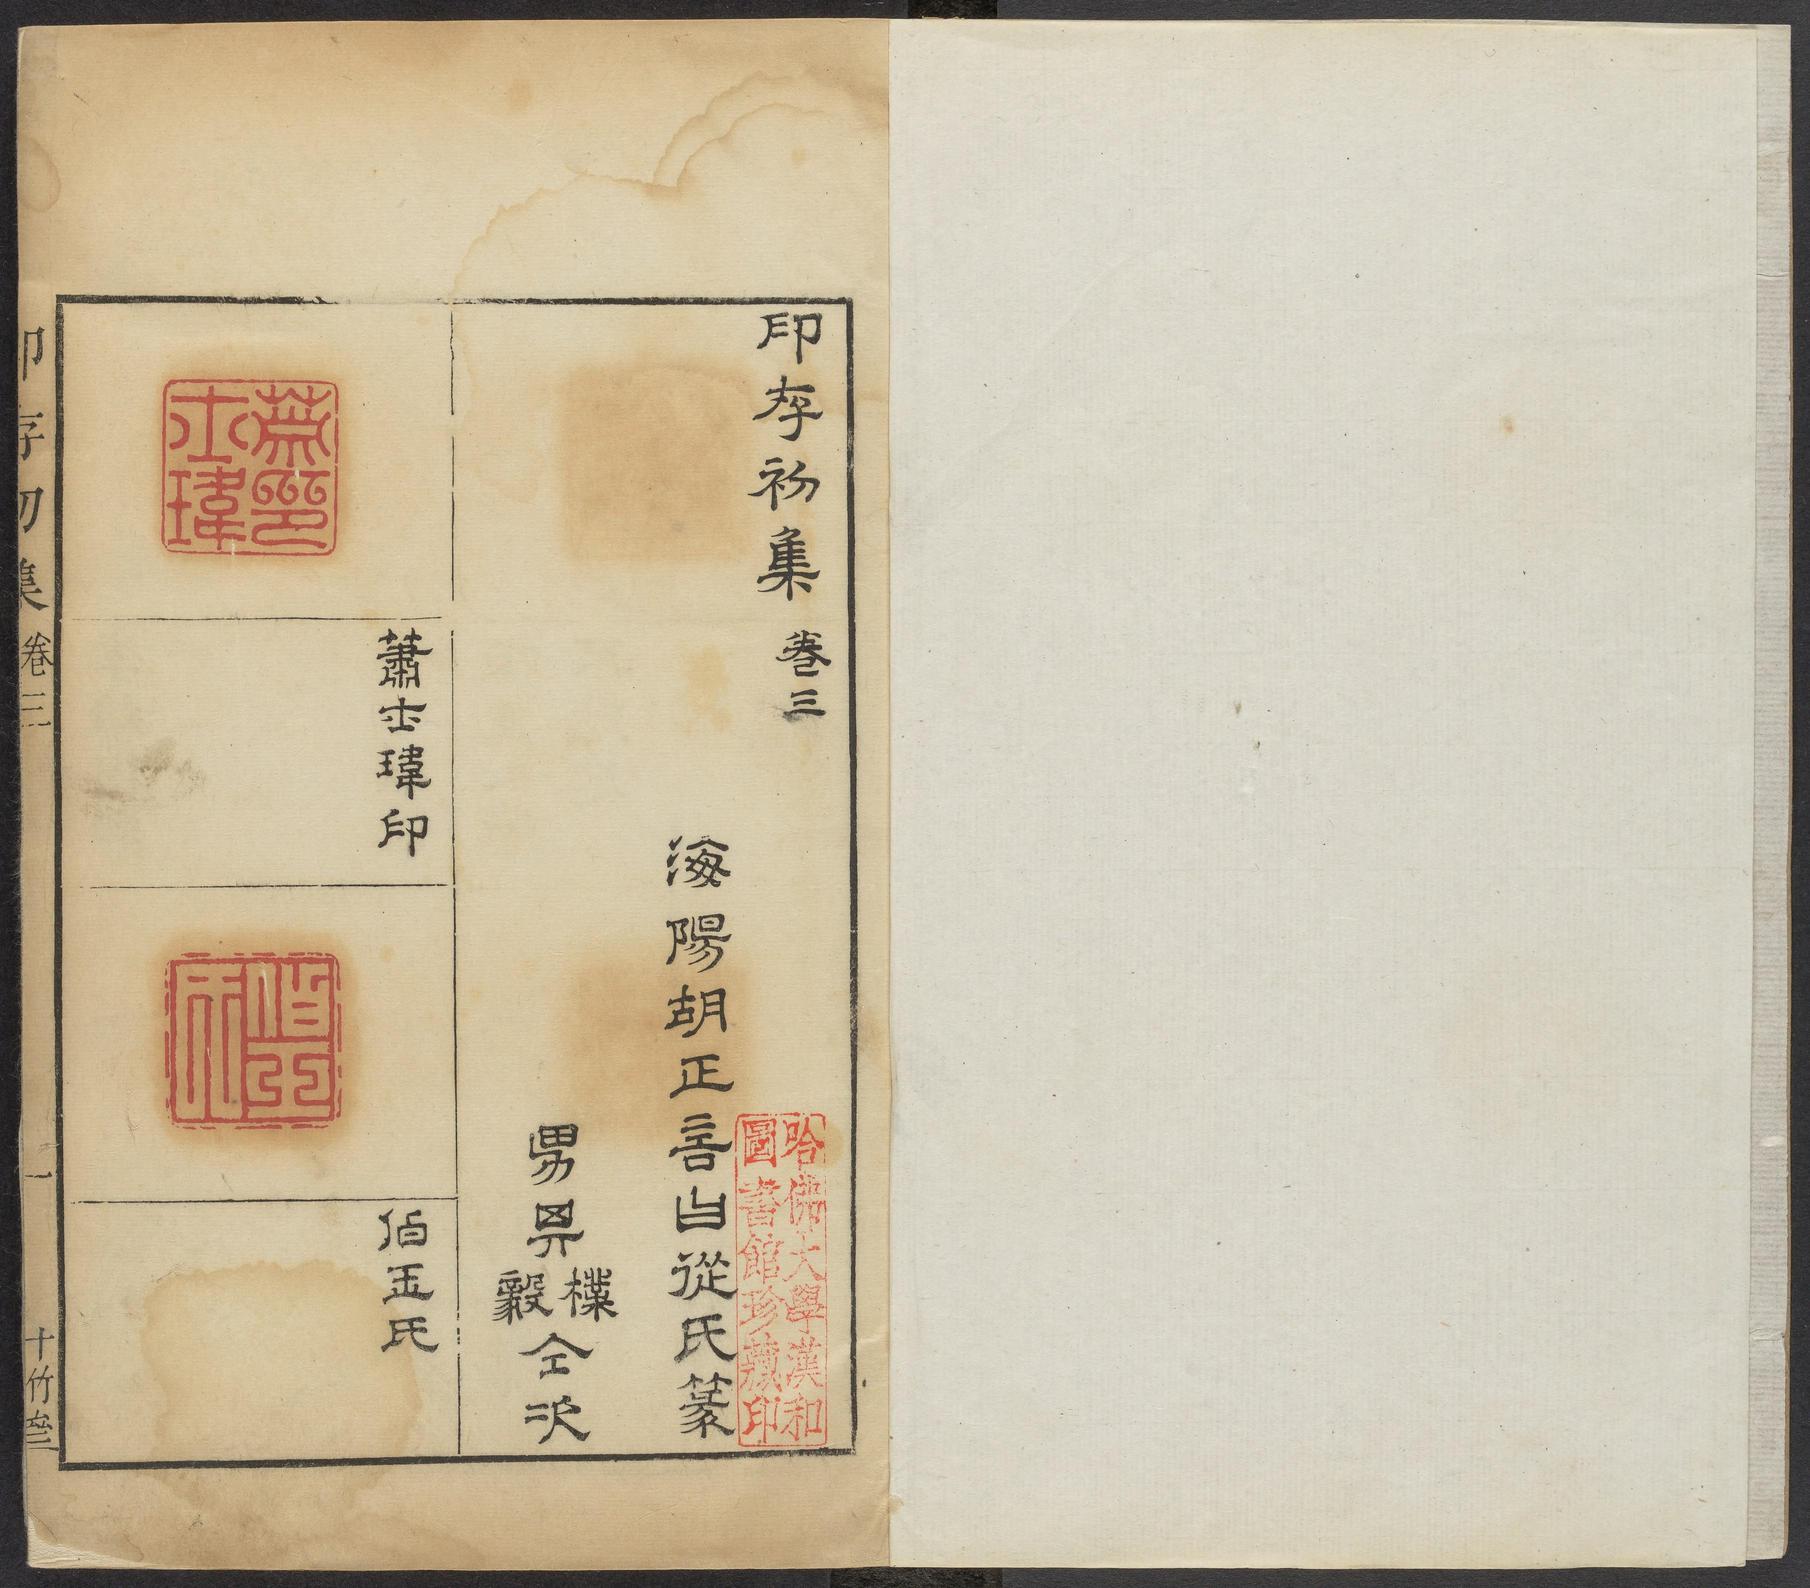 印存初集 卷三
海陽胡正言曰從氏篆
男其樸毅仝次
哈佛大學漢和
圖書館珍藏印
蕭士瑋印
蕭士瑋印
伯玉氏
伯玉氏
印存初集 卷三 一 十竹齋